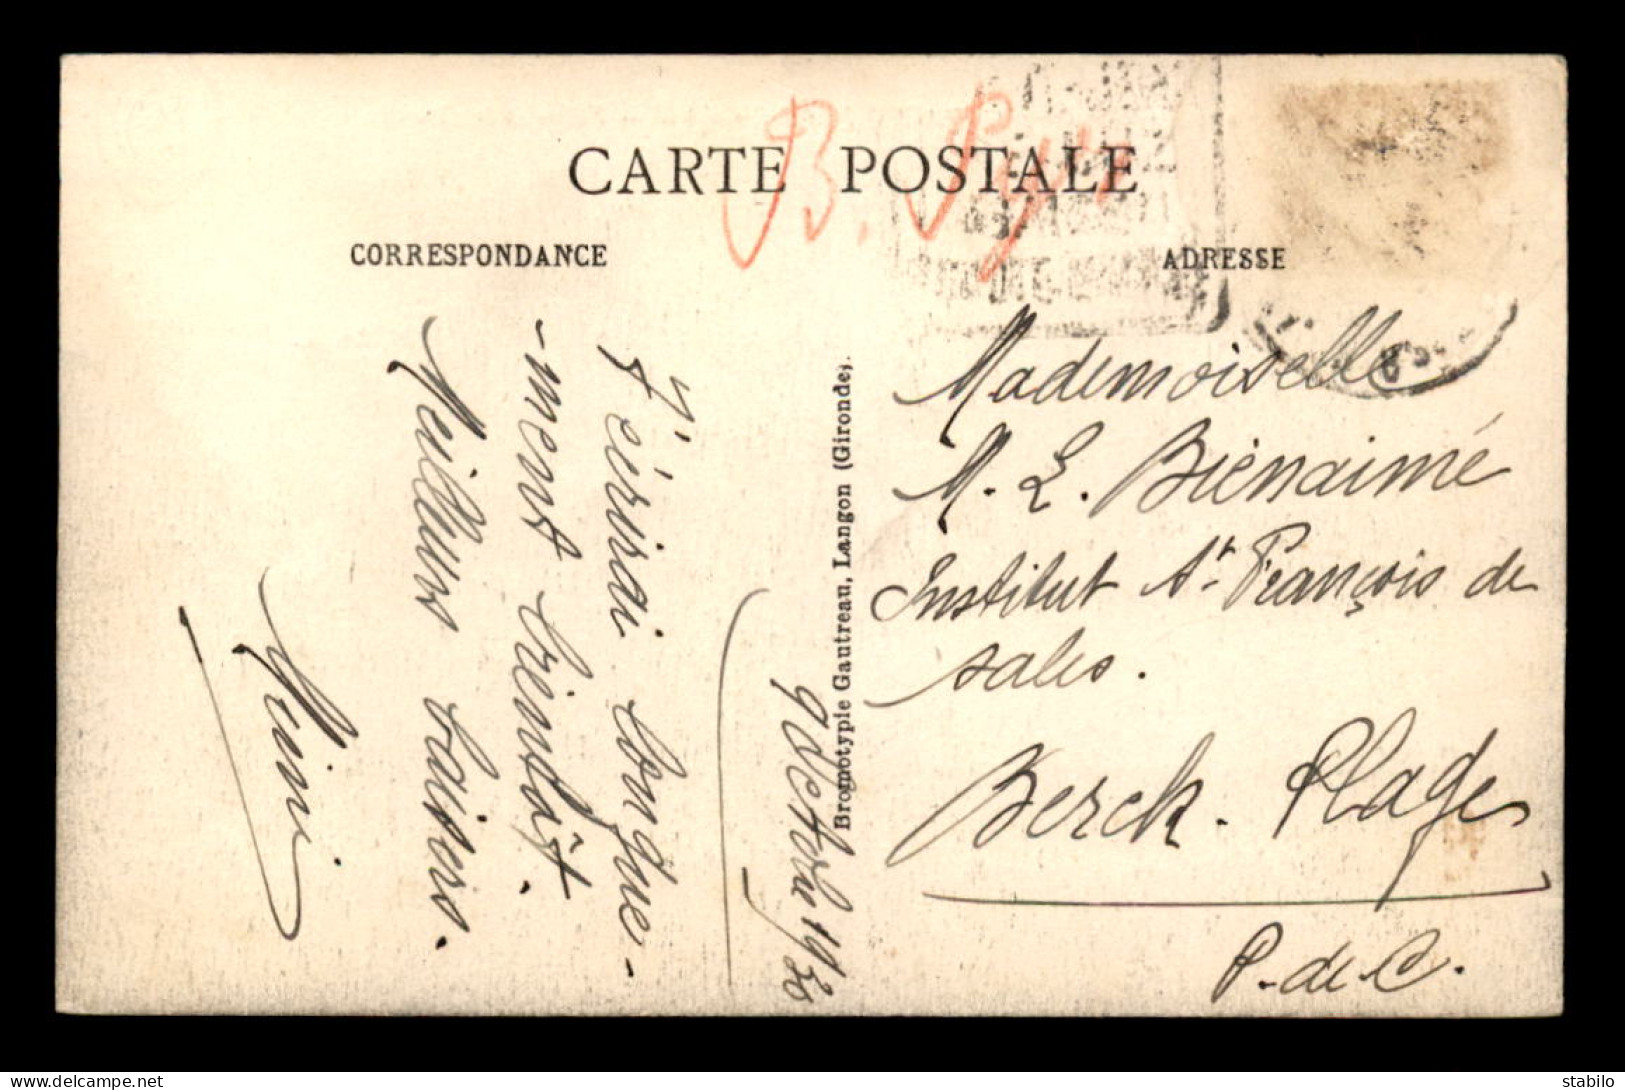 CARTE POSTALE
B. Pyr
CORRESPONDANCE
ADRESSE
9 octobre 1930
T'écrirai longue-
-ment bientôt.
Meilleurs baisers.
Mimi
Bromotypie Gautreau, Langon (Gironde).
Mademoiselle
M. L. Bienaimé
Institut St François de
Sales.
Berck-Plage
P.-de-C.
delcampe.net
stabilo